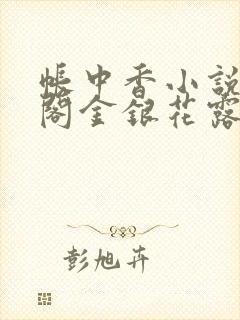 帳中香小説
閣金銀花露
彭旭卉